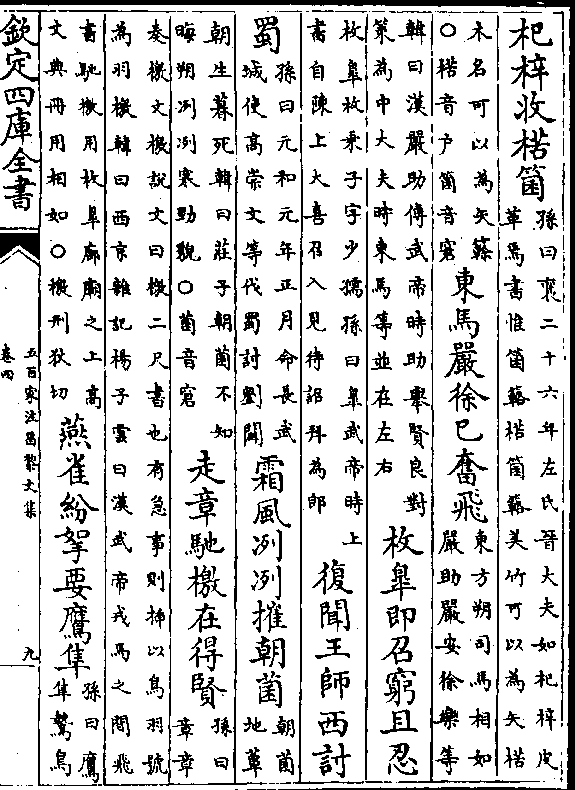 杞梓收楛箘
孫曰襄二十六年左氏晉大夫如杞梓皮
革焉書惟箘簵楛箘簵美竹可以為矢楛
木名可以為矢簳
〇楛音户箘音窘
東馬嚴徐已奮飛
東方朔司馬相如
嚴助嚴安徐樂等
韓曰漢嚴助傳武帝時助舉賢良對
策為中大夫時東馬等並在左右
枚臯即召窮且忍
枚臯枚乘子字少孺孫曰臯武帝時上
書自陳上大喜召入見待詔拜為郎
復聞王師西討
蜀
孫曰元和元年正月命長武
城使高崇文等伐蜀討劉闢
霜風冽冽摧朝菌
朝菌
地蕈
朝生暮死韓曰莊子朝菌不知
晦朔冽冽寒勁貌〇菌音窘
走章馳檄在得賢
孫曰
章章
奏檄文檄說文曰檄二尺書也有急事則揷以鳥羽號
為羽檄韓曰西京雜記楊子雲曰漢武帝戎馬之間飛
書馳檄用枚臯廊廟之上高
文典冊用相如〇檄刑狄切
燕雀紛拏要鷹隼
孫曰鷹
隼鷙鳥
欽定四庫全書
五百家注昌黎文集
卷四
九